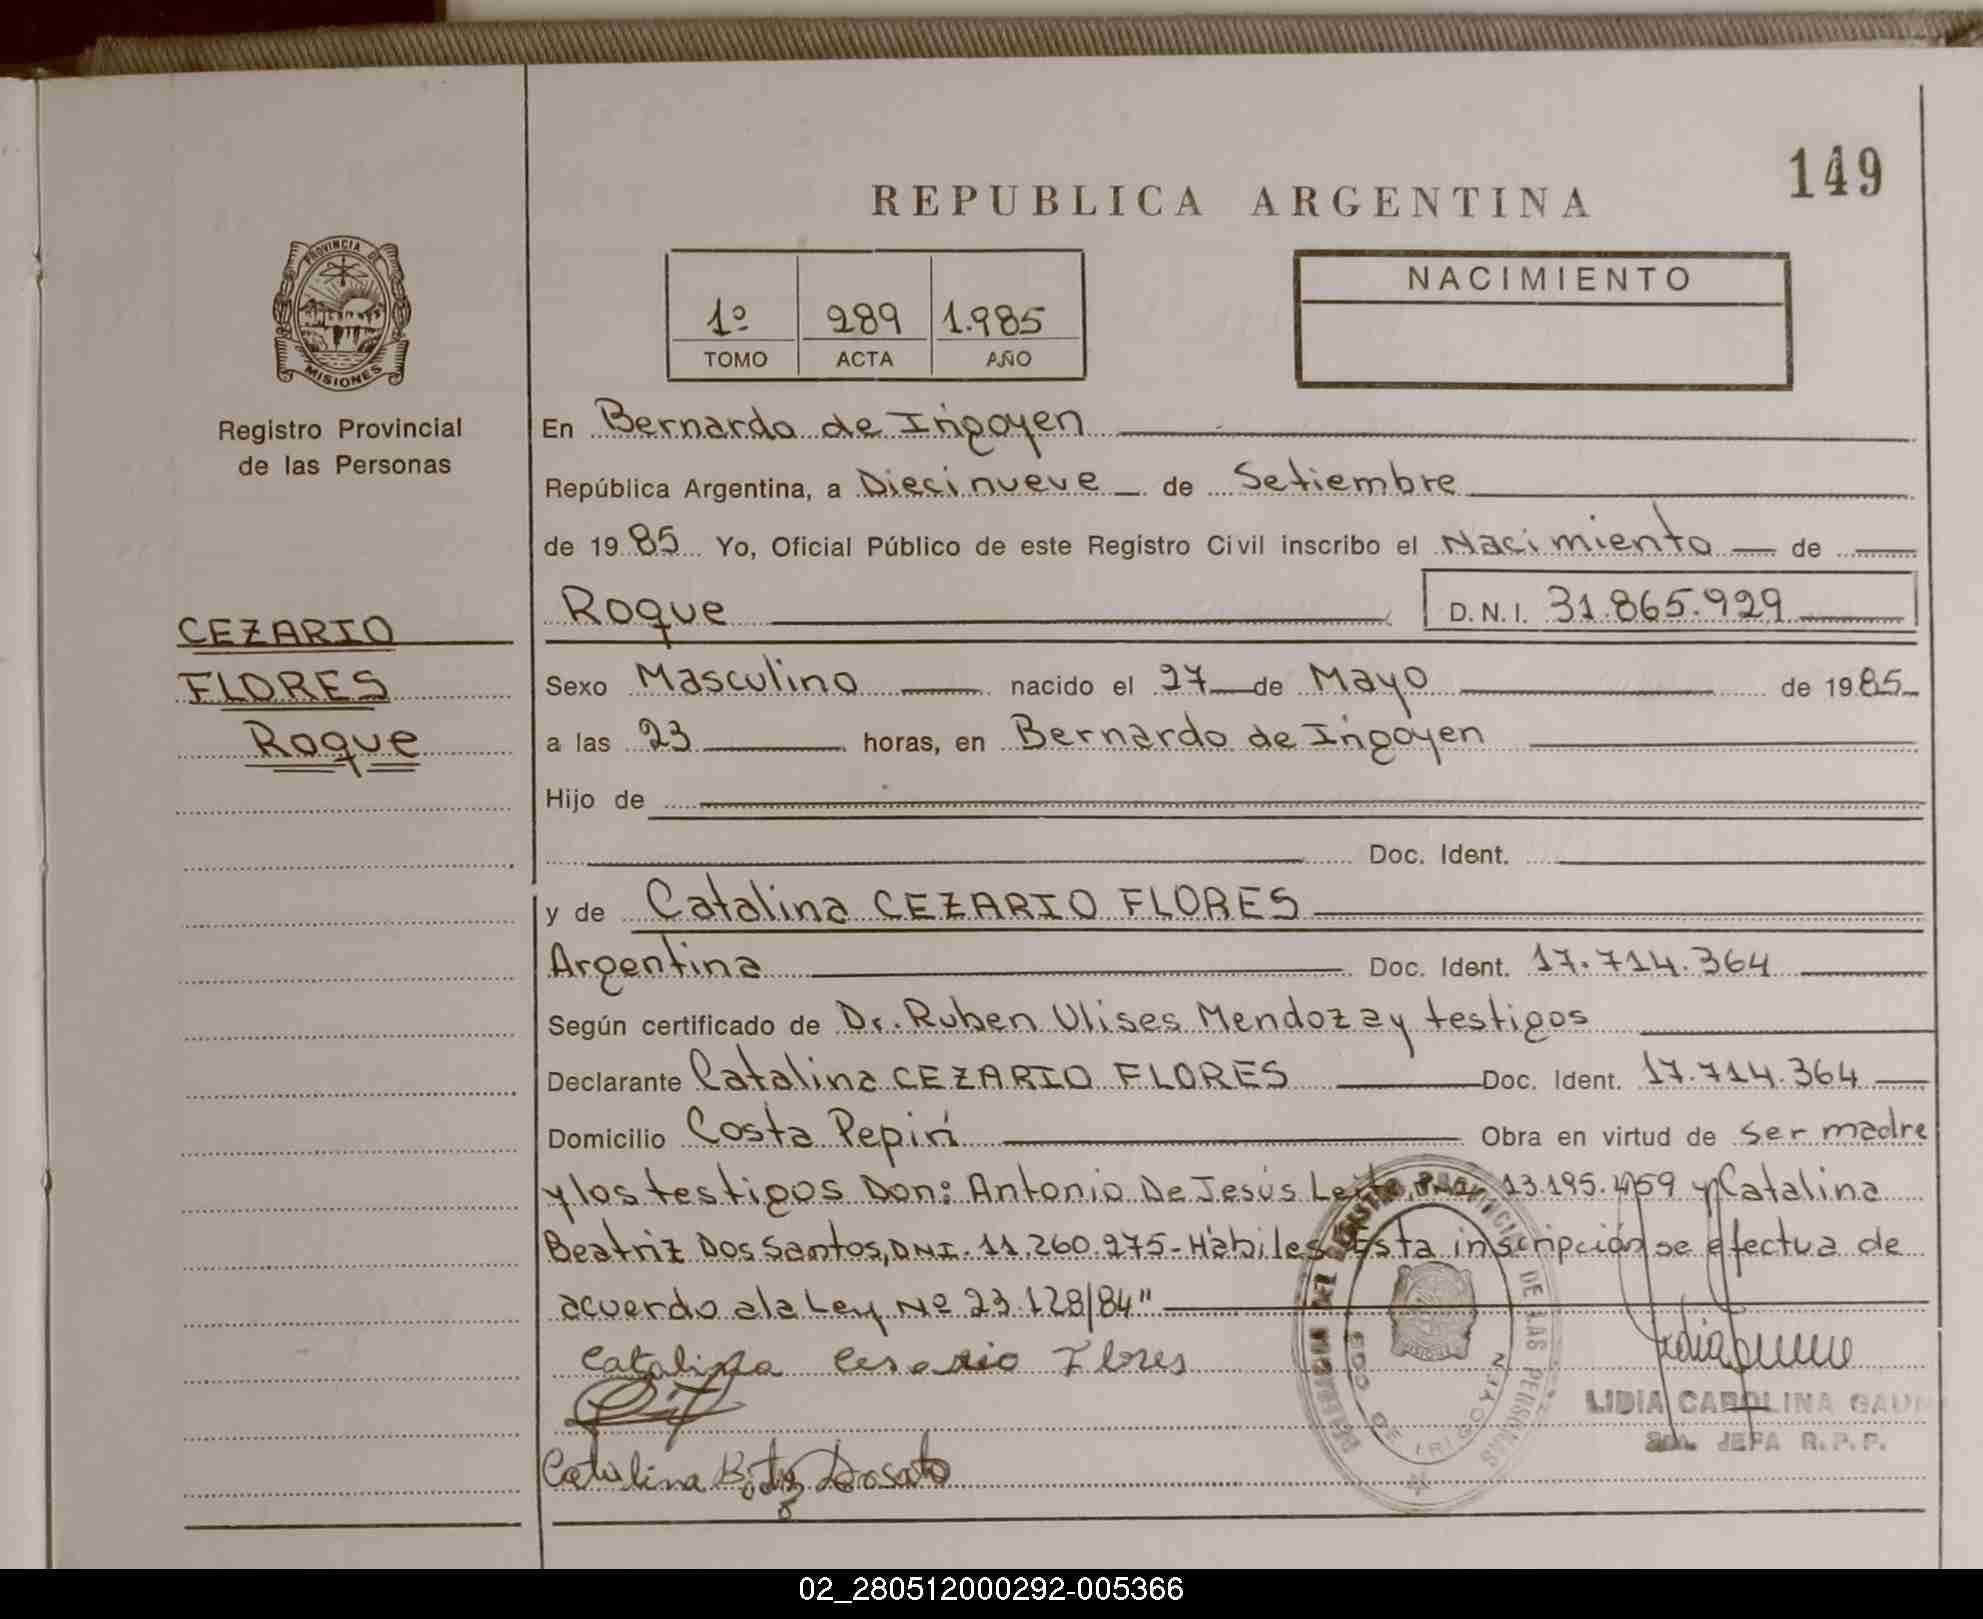 149
REPUBLICA ARGENTINA
PROVINCIA DE
MISIONES
Registro Provincial
de las Personas
1º 289 1.985
TOMO ACTA AÑO
NACIMIENTO
En Bernardo de Irigoyen
República Argentina, a Diecinueve de Setiembre
de 19 85 Yo, Oficial Público de este Registro Civil inscribo el Nacimiento de
Roque D.N.I. 31.865.929
CEZARIO
FLORES
Roque
Sexo Masculino nacido el 27 de Mayo de 19 85
a las 23 horas, en Bernardo de Irigoyen
Hijo de
Doc. Ident.
y de Catalina CEZARIO FLORES
Argentina Doc. Ident. 17.714.364
Según certificado de Dr. Ruben Ulises Mendoza y testigos
Declarante Catalina CEZARIO FLORES Doc. Ident. 17.714.364
Domicilio Costa Pepirí Obra en virtud de ser madre
y los testigos Don: Antonio De Jesús 13.195.
y Catalina
Beatriz Dos Santos, DNI. 11.260.975- Hábiles Esta inscripción se efectua de
acuerdo a la Ley Nº 23.128/84"
Catalina Cesario Flores
Catalina
DE LAS PERSONAS
BDO DE IRIGOYEN
LIDIA CAROLINA
JEFA R.P.P.
02_280512000292-005366